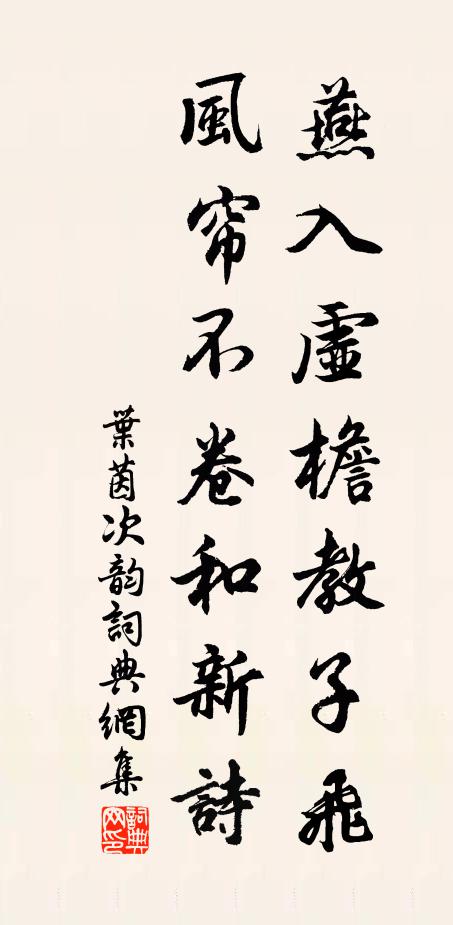 燕入虛檐教子飛
風帘不卷和新詩
葉茵次韵詞典網集
詞典網印